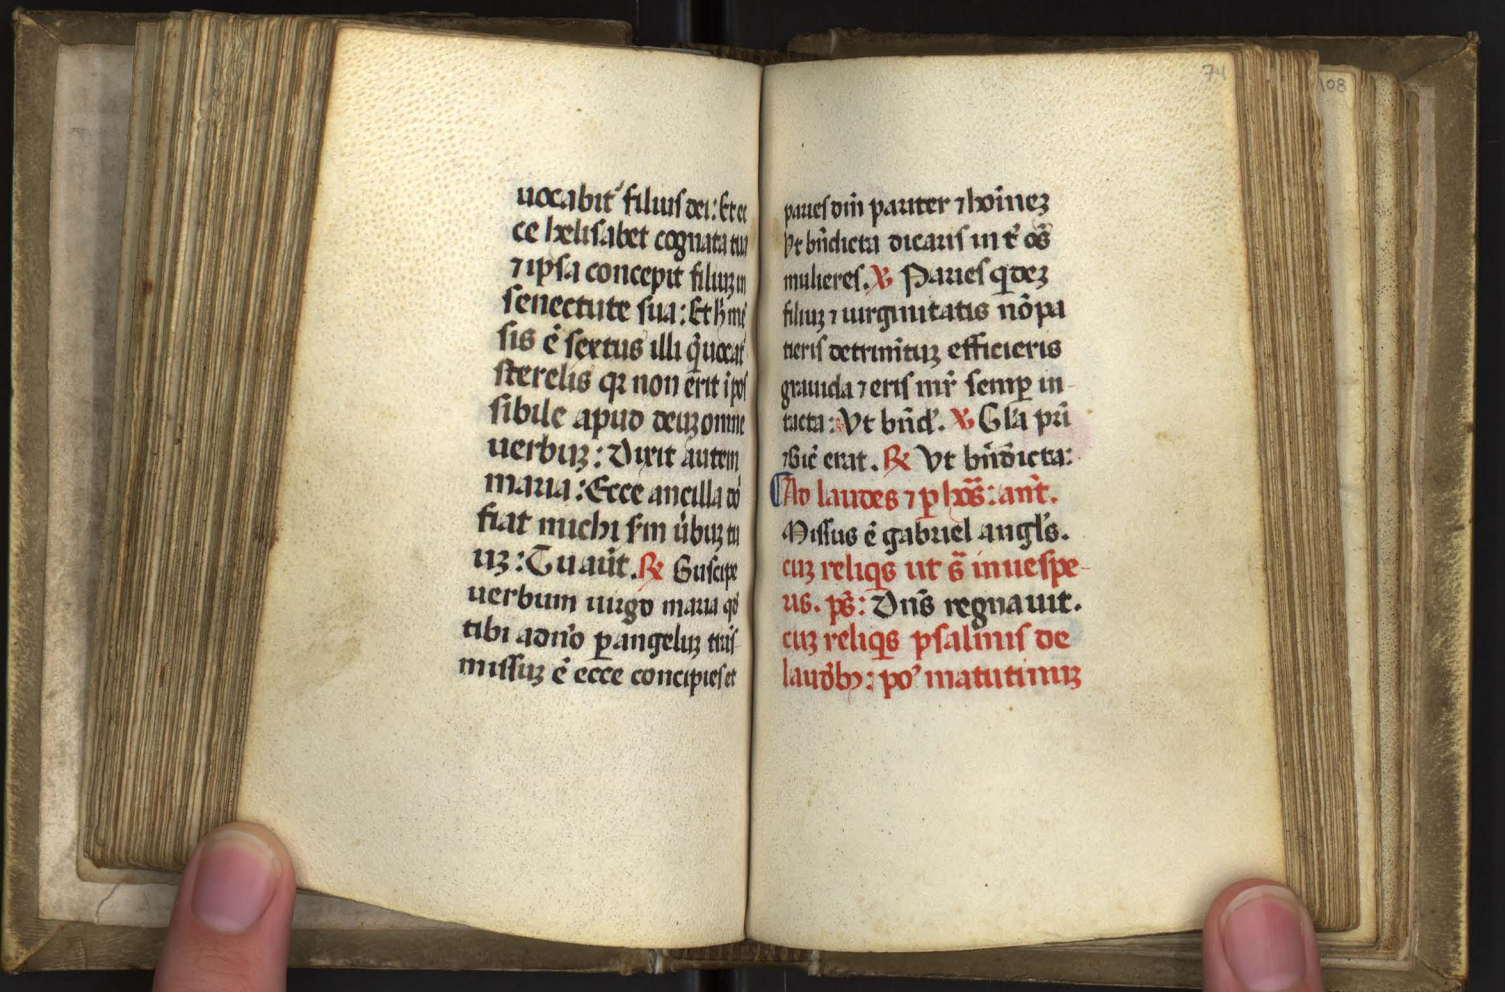 uocabit᷑ filius dei: Et ec
ce helisabet cognata tua
⁊ ipsa concepit filiuʒ in
senectute sua: Et h̄ mē
sis ē sextus illi q̄ uocat᷑
sterelis qꝛ non erit īpos
sibile apud deuʒ omne
uerbuʒ: Dixit autem
maria: Ecce ancilla dō
fiat michi s̄m ūbuʒ tu
uʒ: Tu aūt. ℞ Suscipe
uerbum uirgo maria qd̄
tibi a dn̄o ꝑ angeluʒ trās
missuʒ ē ecce concipies et
74
108
paries dīm pariter ⁊ hoīneʒ
Vt bn̄dicta dicaris int̄ oēs
mulieres. ℣ Paries qͥdeʒ
filiuʒ ⁊ uirginitatis nō pa
tieris detrim̄tuʒ efficieris
grauida ⁊ eris mr̄ semꝑ in
tacta: Vt bn̄d. ℣ Gl̄a pr̄i
⁊ Sic̄ erat. ℞ Vt bn̄dicta:
Ad laudes ⁊ ꝑ hōs: ant̄.
Missus ē gabriel angl̄s.
cuʒ reliqͥs ut s̄ in uespe-
ris. ps̄: Dn̄s regnauit.
cuʒ reliqͥs psalmis de
laudibꝫ: po᷒ matutinuʒ